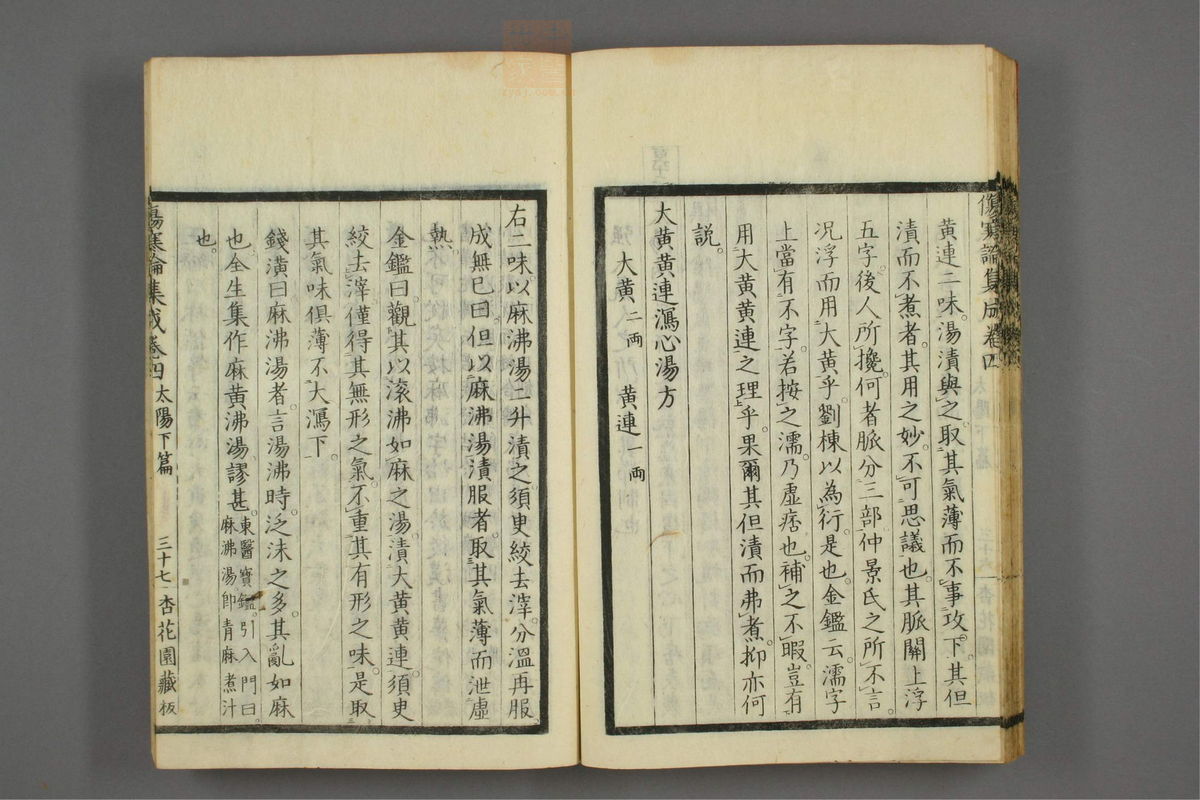 傷寒論集成卷四
黄連二味湯漬與之取其氣薄而不事攻下其但
漬而不煮者其用之妙不可思議也其脈關上浮
五字後人所攙何者脈分三部仲景氏之所不言
况浮而用大黄乎劉棟以為衍是也金鑑云濡字
上當有不字若按之濡乃虛痞也補之不暇豈有
用大黄黄連之理乎果爾其但漬而弗煮抑亦何
説
大黄黄連瀉心湯方
大黄二兩 黄連一兩
右二味以麻沸湯二升漬之須臾絞去滓分溫再服
成無已曰但以麻沸湯漬服者取其氣薄而泄虛
熱
金鑑曰觀其以滚沸如麻之湯漬大黄黄連須臾
絞去滓僅得其無形之氣不重其有形之味是取
其氣味俱薄不大瀉下
錢潢曰麻沸湯者言湯沸時泛沫之多其亂如麻
也全生集作麻黄沸湯謬甚東醫寶鑑引入門曰
麻沸湯卽青麻煮汁
也
傷寒論集成卷四 太陽下篇 三十七 杏花園藏板